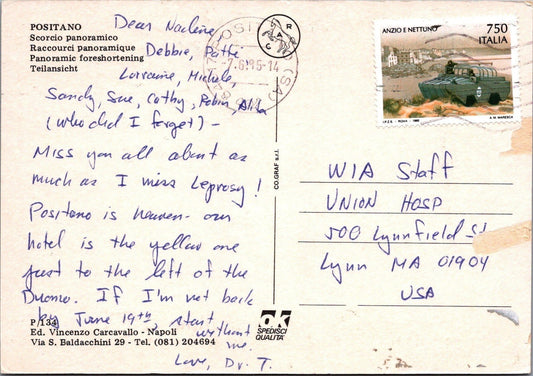 POSITANO
Scorcio panoramico
Raccourci panoramique
Panoramic foreshortening
Teilansicht
Dear Nadine,
Debbie, Patti
Lorraine, Michele,
Sandy, Sue, Cathy, Robin, Alisa
(Who did I forget) -
Miss you all about as
much as I miss Leprosy!
Positano is Heaven - our
hotel is the yellow one
just to the left of the
Duomo. If I'm not back
by June 19th, start
without
me.
Love, Dr. T.
P/134
Ed. Vincenzo Carcavallo - Napoli
Via S. Baldacchini 29 - Tel. (081) 204694
CO.GRAF s.r.l.
ok
SPEDISCI
QUALITÀ
R
A
C
POSITANO (SA)
-14
ANZIO E NETTUNO
750
ITALIA
I.P.Z.S. - ROMA
A.M. MARESCA
WIA Staff
Union Hosp
500 Lynnfield St
Lynn MA 01904
USA